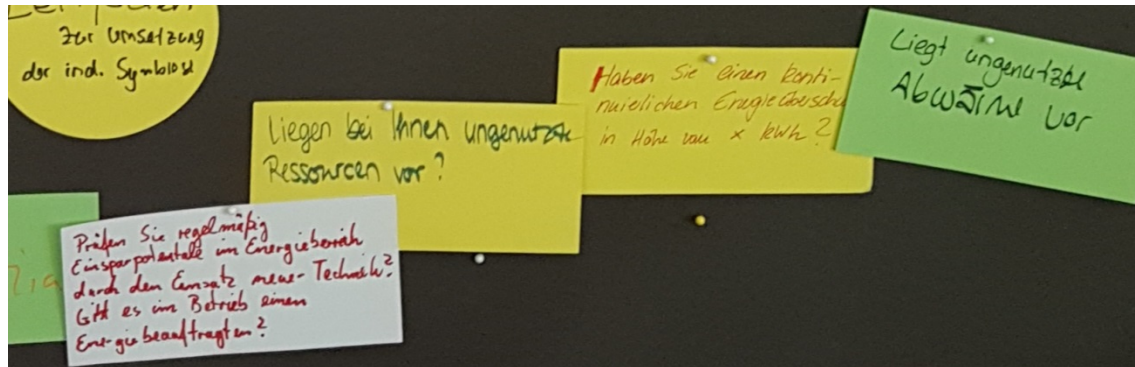 Leitfaden
zur Umsetzung
der ind. Symbiose
Liegen bei Ihnen ungenutzte
Ressourcen vor?
Haben Sie einen konti-
nuierlichen Energieübersch
in Höhe von x kWh?
Liegt ungenutzte
Abwärme vor
Prüfen Sie regelmäßig
Einsparpotentiale im Energiebereich
durch den Einsatz neuer Technik?
Gibt es im Betrieb einen
Energiebeauftragten?